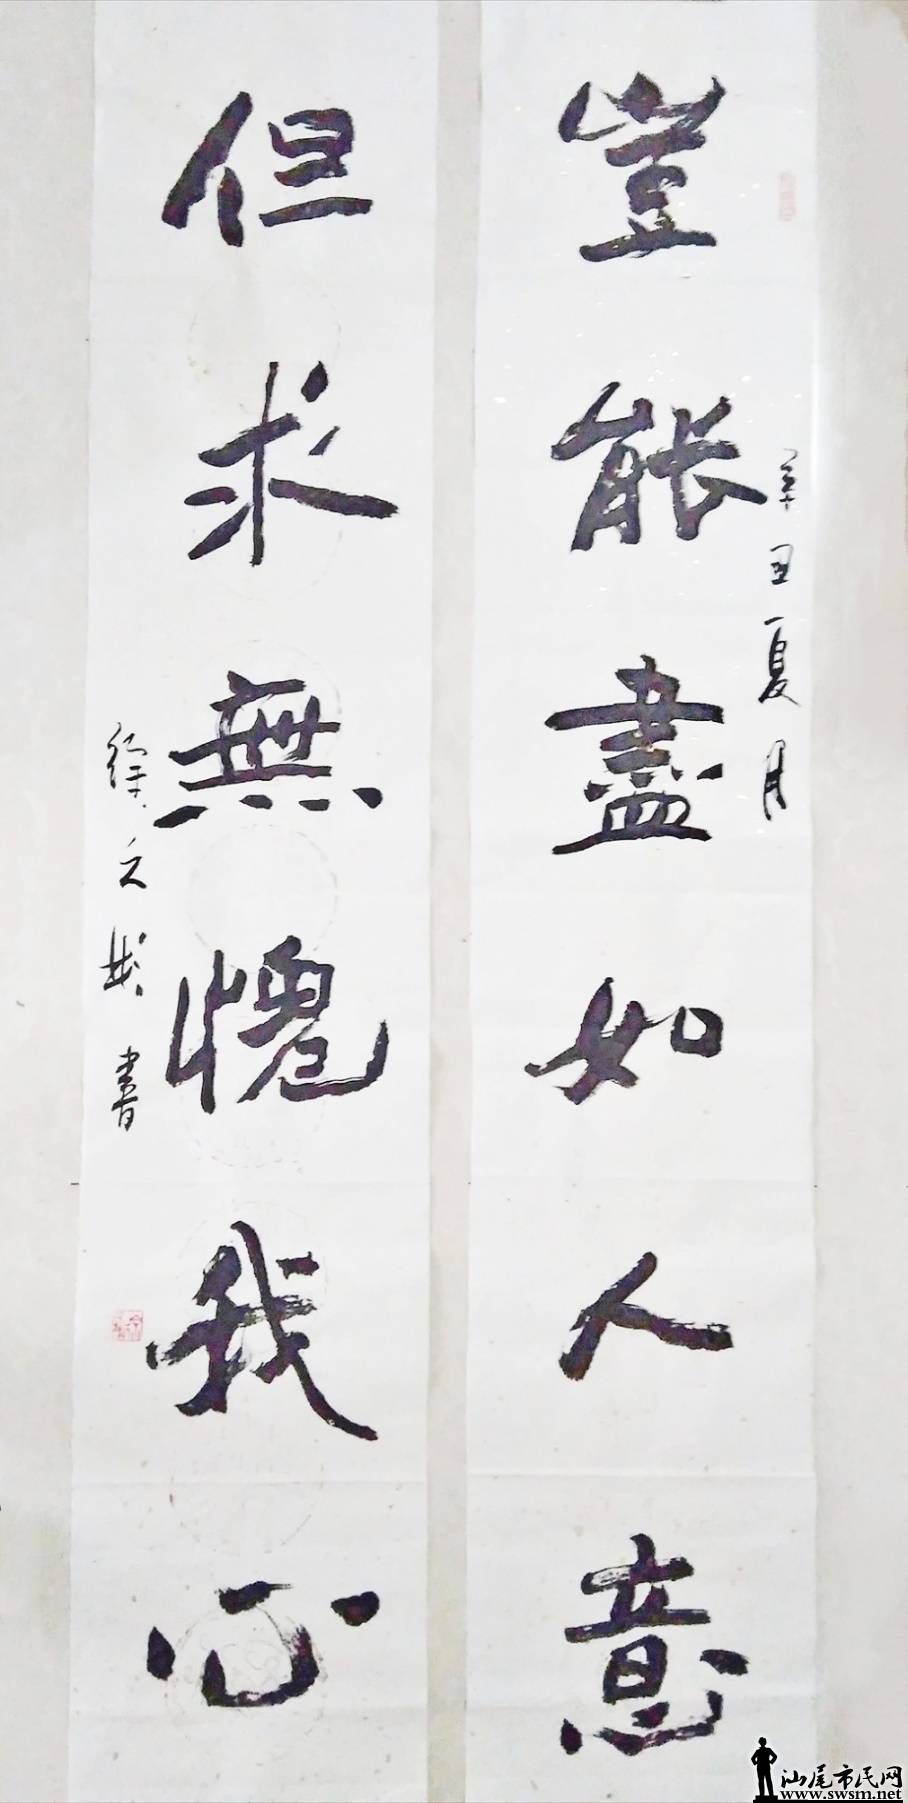 豈能盡如人意
辛丑夏月
但求無愧我心
徐之彬書
汕尾市民网
www.swsm.net